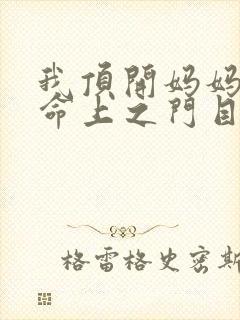 我頂開妈妈
命上之門目
格雷格史密斯